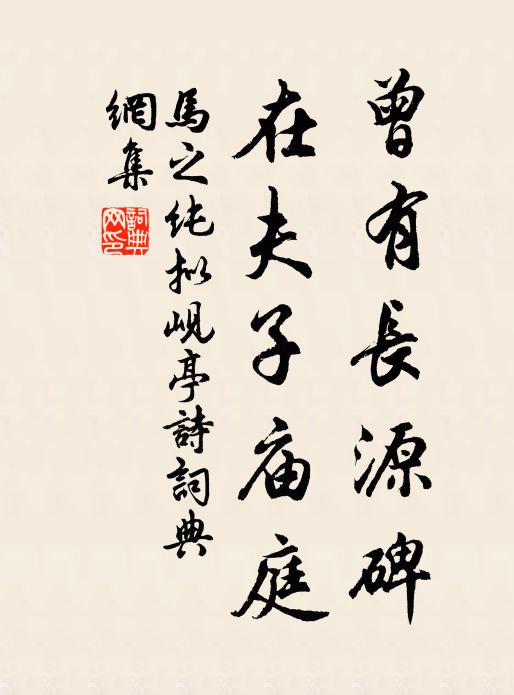 曾有長源碑
在夫子庙庭
馬之纯拟峴亭詩詞典
網集
詞典網印